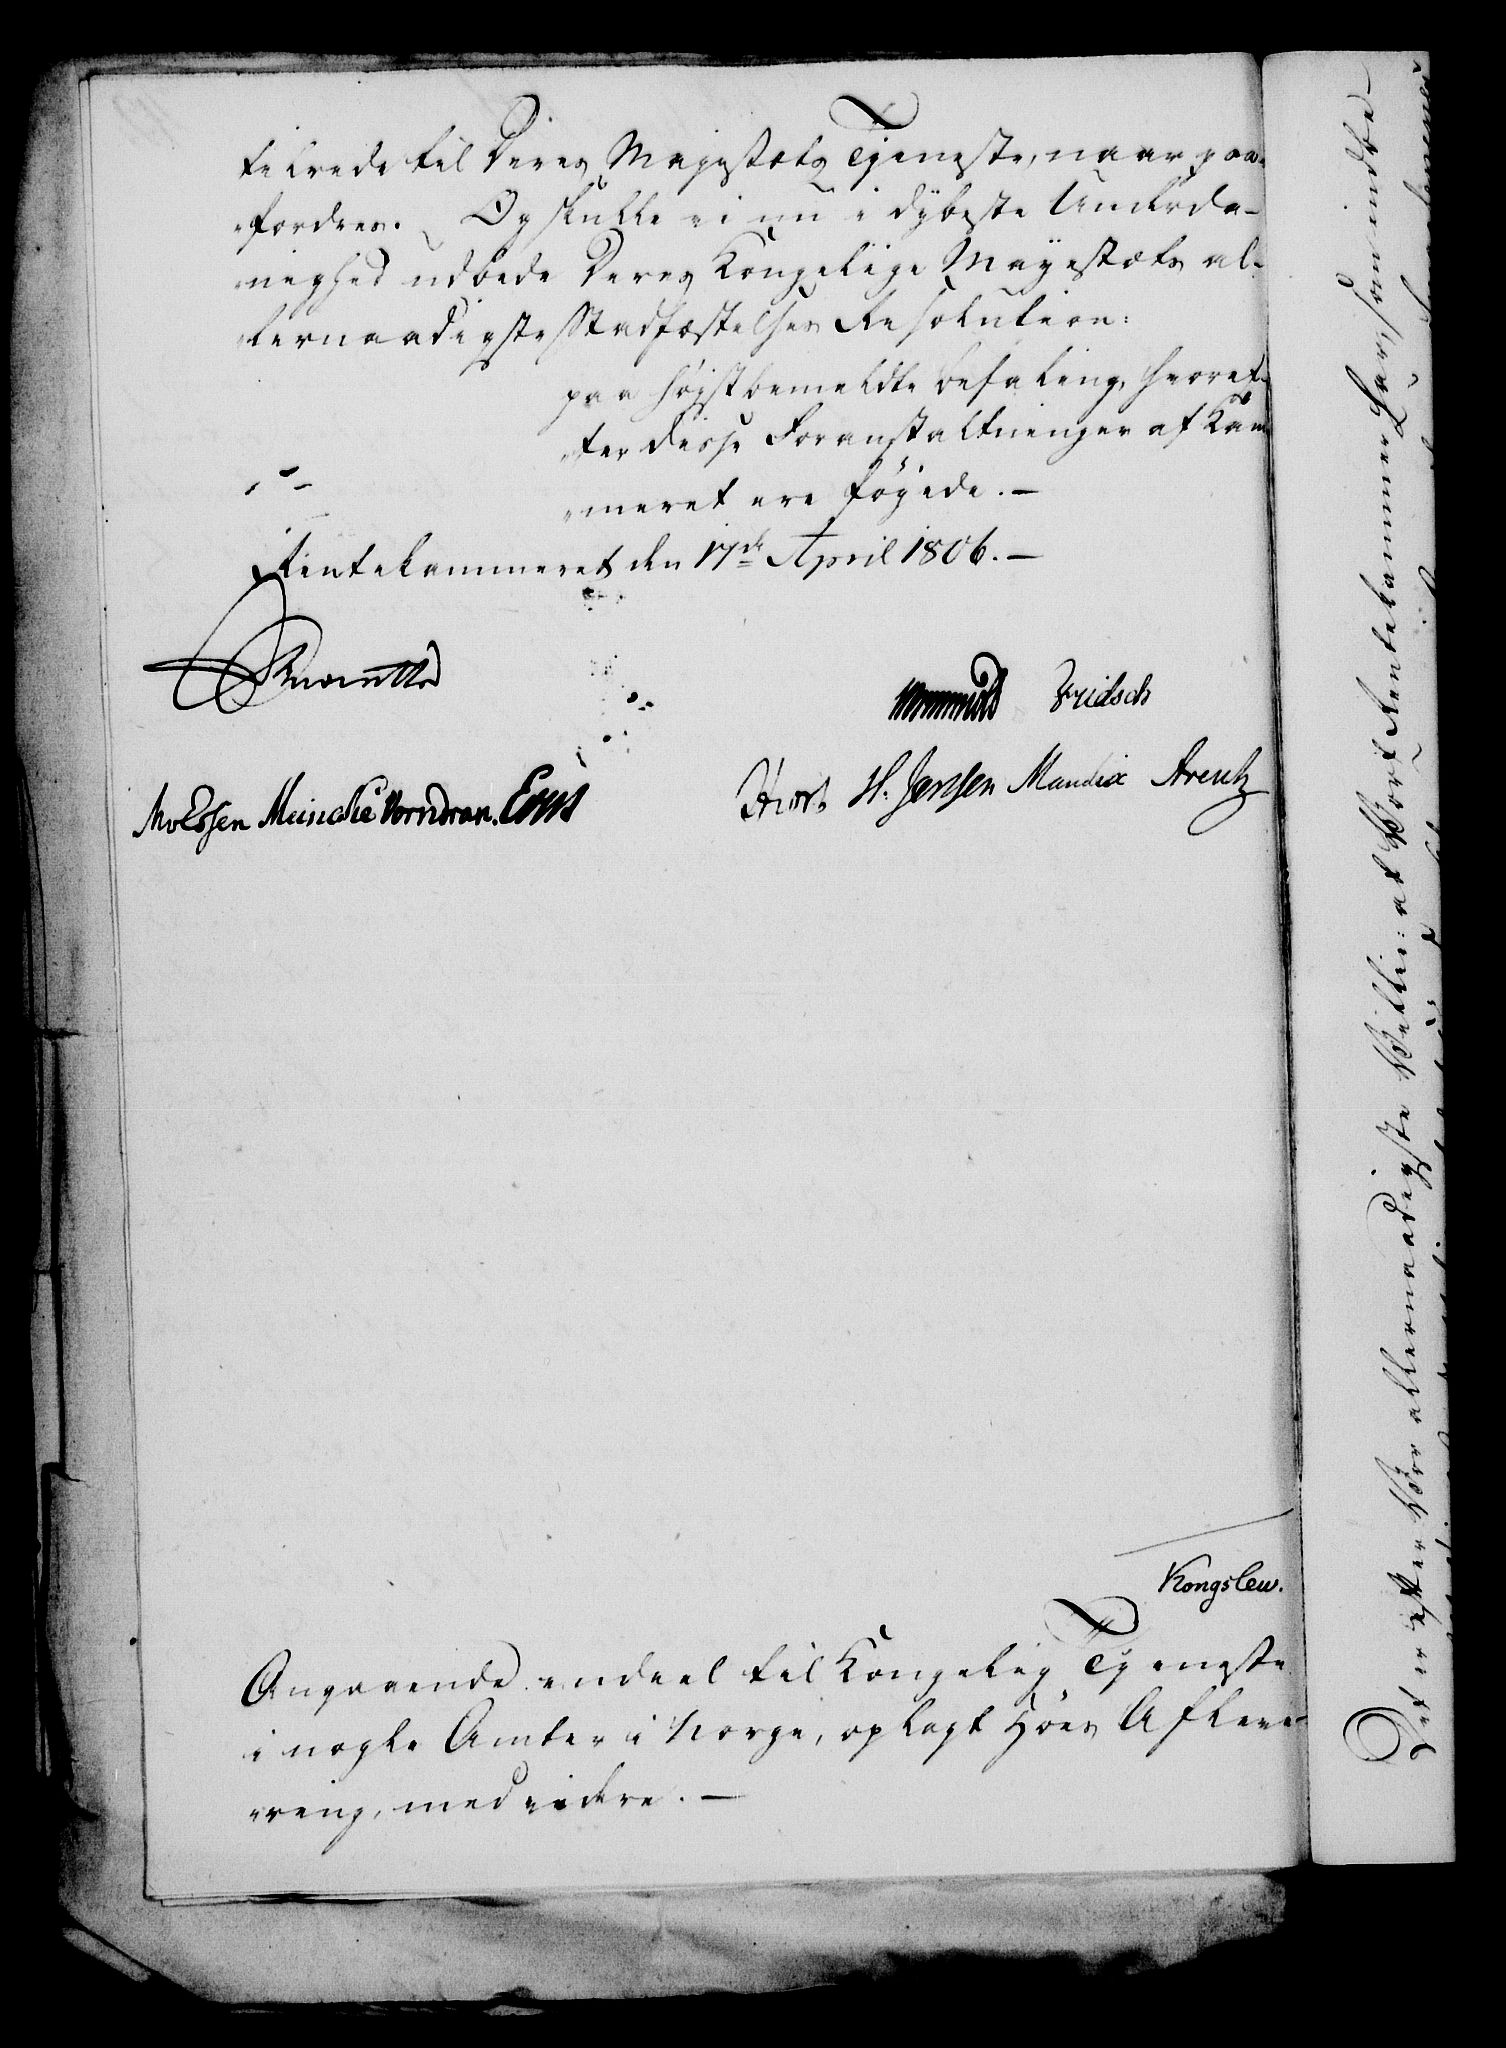 tilrede til Deres Majestæts Tjeneste, naar paa-
fordres. Og skulle vi nu i dybeste Underda-
nighed udbede Deres Kongelige Mayestæts al-
lernaadigste Stadfæstelses Resolution:
paa høystbemeldte befaling, hvoref-
ter disse Foranstaltninger af Kam-
meret ere føyede. —
Rentekammeret den 17de April 1806. —
Wormskiold Fridsch
MvEssen Meincke Vorndran.
H. Jensen Mandix Arentz
Kongslew.
Angaaende endeel til Kongelig Tjeneste
i nogle Amter i Norge, oplagt Höes Afleve-
ring, med videre. —
Det er efter Vor allernaadigste Villie: at Vort Rentekammer har, som indbe-